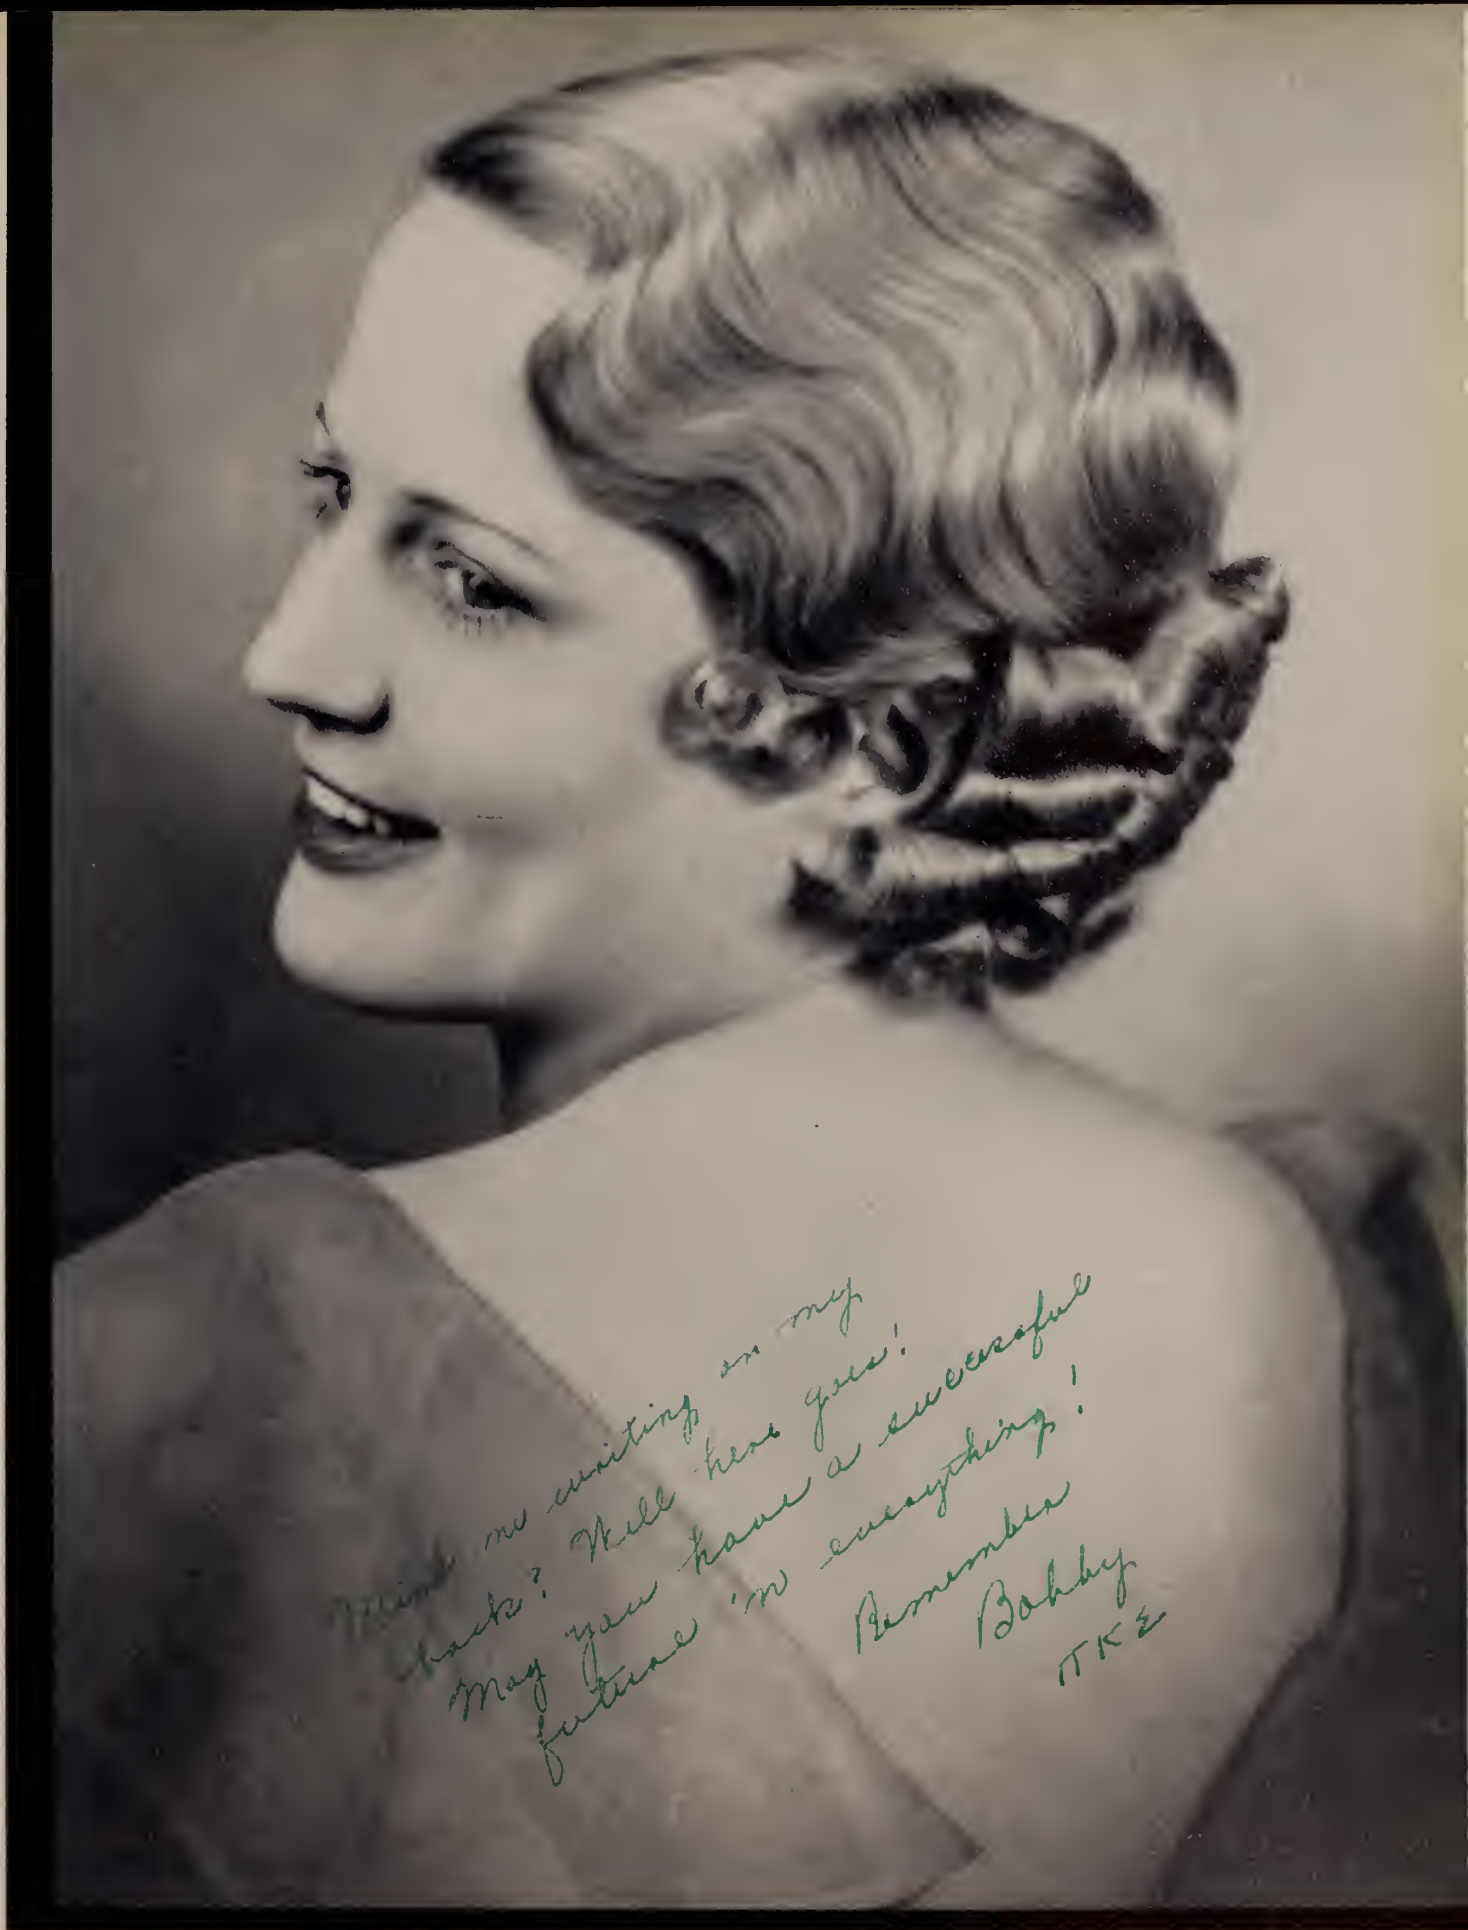 Mind me writing on my
back? Well here goes!
May you have a successful
future 'n everything!
Remember
Bobby
ΠΚΣ